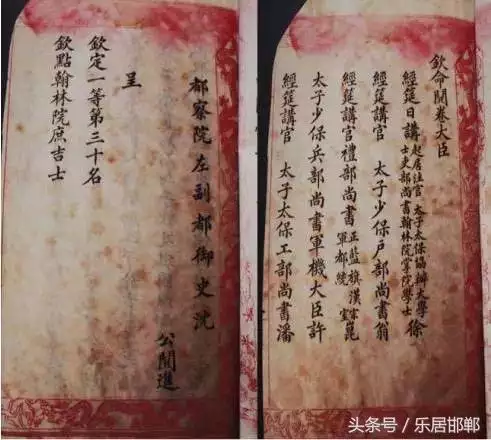 欽命閱卷大臣
經筵日講起居注官太子太保協辦大學士吏部尚書翰林院掌院學士徐
經筵講官 太子少保户部尚書翁
經筵講官禮部尚書正藍旗漢軍都統宗室崑
太子少保兵部尚書軍機大臣許
經筵講官 太子太保工部尚書潘
都察院左副都御史沈
公閱進
呈
欽定一等第三十名
欽點翰林院庶吉士
头条号／乐居邯郸